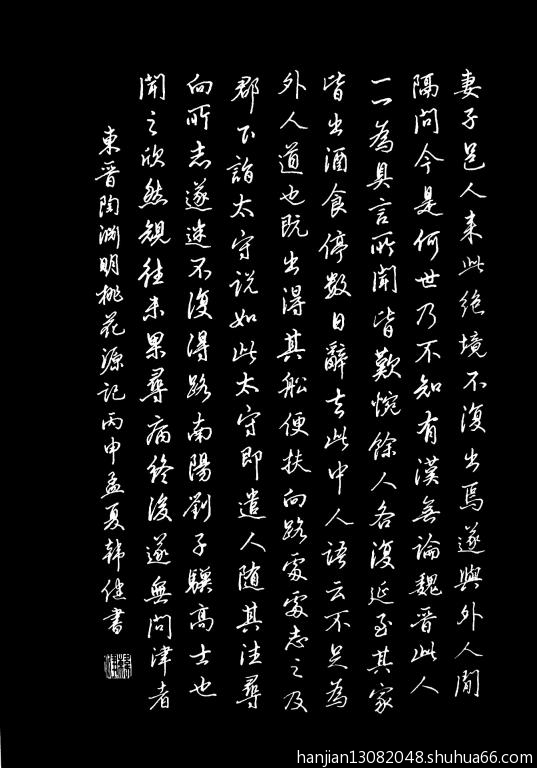 妻子邑人来此绝境不復出焉遂與外人間
隔問今是何世乃不知有漢無論魏晋此人
一一為具言所聞皆歎惋餘人各復延至其家
皆出酒食停數日辭去此中人語云不足為
外人道也既出得其船便扶向路處處志之及
郡下詣太守说如此太守即遣人随其往尋
向所志遂迷不復得路南陽劉子驥高士也
聞之欣然規往未果尋病終後遂無問津者
東晋陶渊明桃花源记丙申孟夏韩健書
hanjian13082048.shuhua66.com